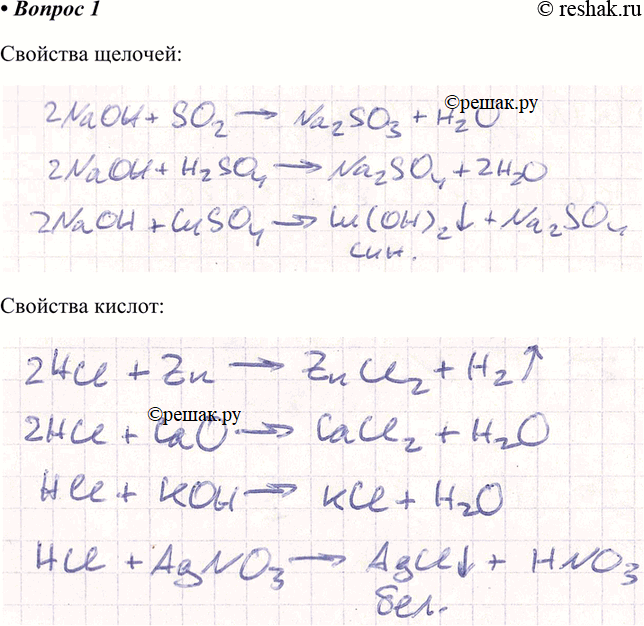 • Вопрос 1
© reshak.ru
Свойства щелочей:
©решак.ру
2NaOH + SO₂ → Na₂SO₃ + H₂O
2NaOH + H₂SO₄ → Na₂SO₄ + 2H₂O
2NaOH + CuSO₄ → Cu(OH)₂↓ + Na₂SO₄
син.
Свойства кислот:
2HCl + Zn → ZnCl₂ + H₂↑
©решак.ру
2HCl + CaO → CaCl₂ + H₂O
HCl + KOH → KCl + H₂O
HCl + AgNO₃ → AgCl↓ + HNO₃
бел.